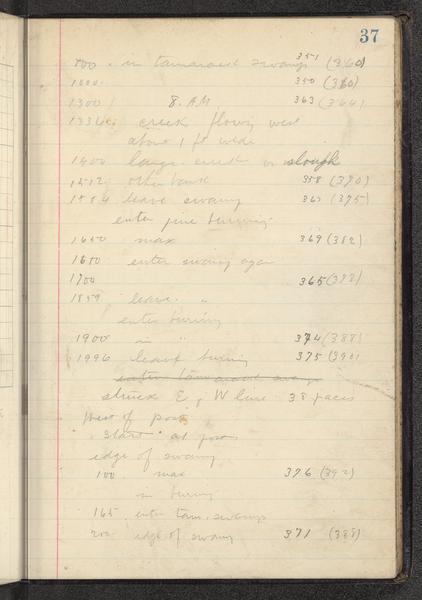 37
800 . in tamarack swamp 351 (360)
1000. 350 (360)
1300 8. A.M. 363 (366)
1336 creek flowing west
about 1 ft wide
1400 large creek or slough
1512 other bank 358 (370)
1584 leave swamp 367 (375)
enter pine burning
1650 max 369 (382)
1680 enter swamp again
1700 365 (378)
1859 leave "
enter burning
1900 in " 374 (388)
1996 leave burning 375 (390)
enter tamarack swamp
struck E & W line 38 paces
West of post
Start at post
edge of swamp
100 max 376 (392)
in burning
165 enter tam. swamp
200 edge of swamp 371 (388)